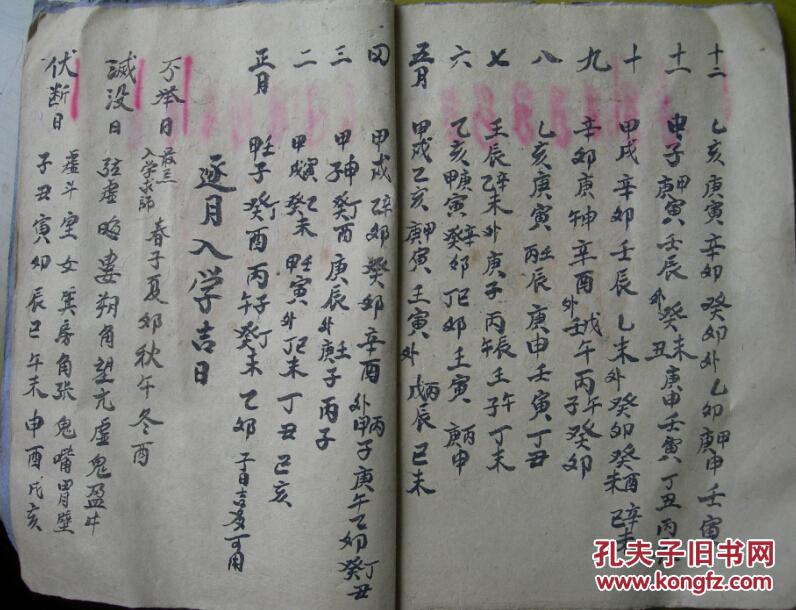 伏断日 子丑寅卯辰巳午未申酉戌亥
虚斗室女箕房角张鬼嘴胃壁
滅没日 弦虚晦娄朔角望亢虚鬼盈牛
不举日 最忌入学求师 春子夏卯秋午冬酉
逐月入学吉日
正月 甲壬子癸丁酉丙子午丁癸未乙卯 子日吉多可用
二 甲戌寅癸乙未甲壬寅外丁己未丁丑己亥
三 甲子申癸丁酉庚辰外庚壬子丙子
四 甲戌乙辛卯癸卯辛酉外甲丙子庚午乙卯癸丁丑
五月 甲戌乙亥庚甲寅壬寅外戊丙辰己未
六 乙亥甲庚寅癸辛卯丁己卯壬寅庚丙申
七 壬辰乙辛未外庚子丙辰午壬子午丁未
八 乙亥庚寅丙壬辰庚申壬寅丁丑
九 辛卯庚午申辛酉外壬戌午丙子午癸卯
十 甲戌辛卯壬辰乙未外癸卯癸未酉己辛未
十一 庚甲寅壬辰外癸丑未庚申壬寅丁丑丙
十二 乙亥庚寅辛卯癸卯外乙卯庚甲申壬寅
孔夫子旧书网
www.kongfz.com